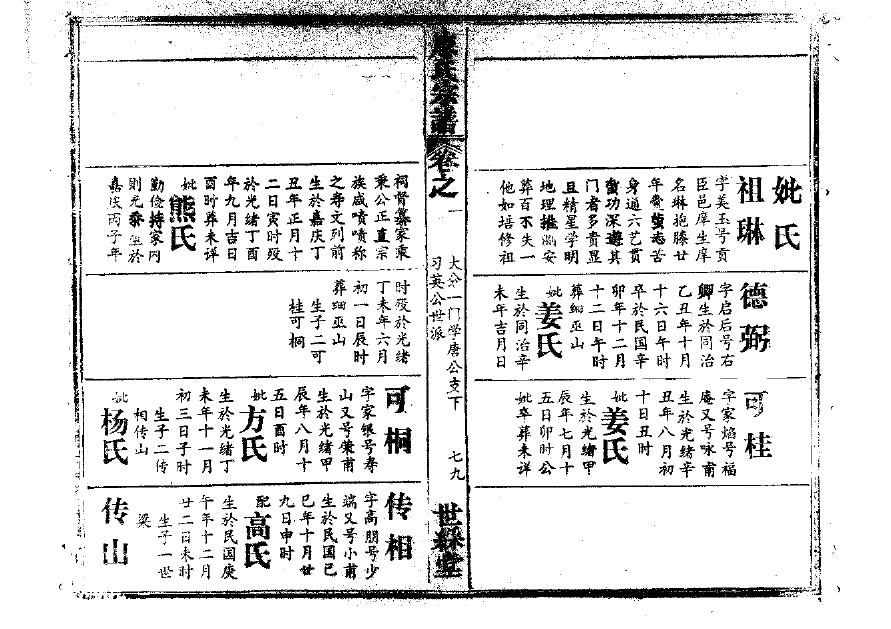 妣氏
祖琳
字美玉号贡
臣邑庠生庠
名琳抱滕廿
年费萤远苦
身通六艺贯
功深遵其
门者多贵显
且精星学明
地理推安
葬百不失一
他如培修祖
德弼
字启后号右
卿生於同治
乙丑年十月
十六日午时
卒於民国辛
卯年十二月
十二日午时
葬细巫山
妣姜氏
生於同治辛
未年吉月日
可桂
字家焰号福
庵又号咏甫
生於光绪辛
丑年八月初
十日丑时
妣姜氏
生於光绪甲
辰年七月十
五日卯时公
妣卒葬未详
氏宗谱
卷之一
大分一门学唐公支下
习英公世派
七九
世堂
祠督纂家乘
秉公正直宗
族咸啧啧称
之寿文列前
生於嘉庆丁
丑年正月十
二日寅时殁
於光绪丁酉
年九月吉日
酉时葬未详
妣熊氏
勤俭持家内
则光生於
嘉庆丙子年
时殁於光绪
丁未年六月
初一日辰时
葬细巫山
生子二可
桂可桐
可桐
字家银号寿
山又号荣甫
生於光绪甲
辰年八月十
五日酉时
妣方氏
生於光绪丁
未年十一月
初三日子时
生子二传
相传山
妣杨氏
传相
字高朋号少
端又号小甫
生於民国己
巳年十月廿
九日申时
配高氏
生於民国庚
午年十二月
廿二日未时
生子一世
梁
传山